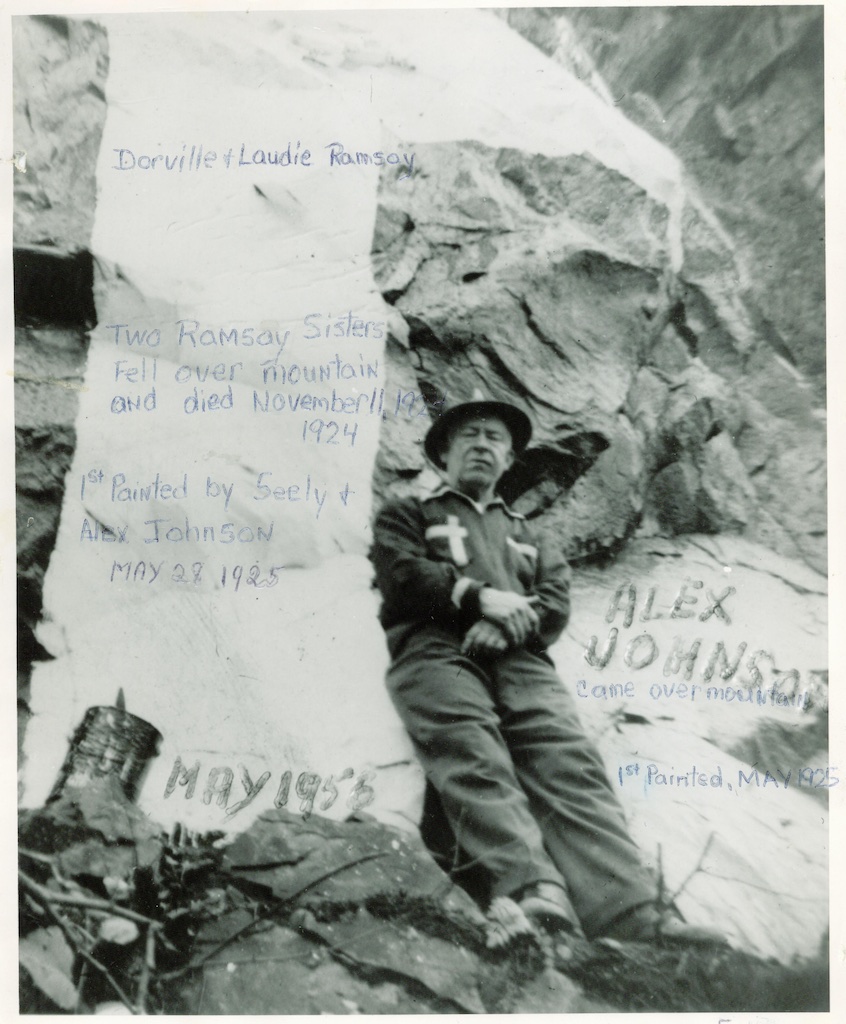 Dorville + Laudie Ramsay
Two Ramsay Sisters
Fell over mountain
and died November 11, 192
1924
1st Painted by Seely +
Alex Johnson
MAY 28 1925
ALEX
JOHNSON
Came over mountain
1st Painted, MAY 1925
MAY 1956